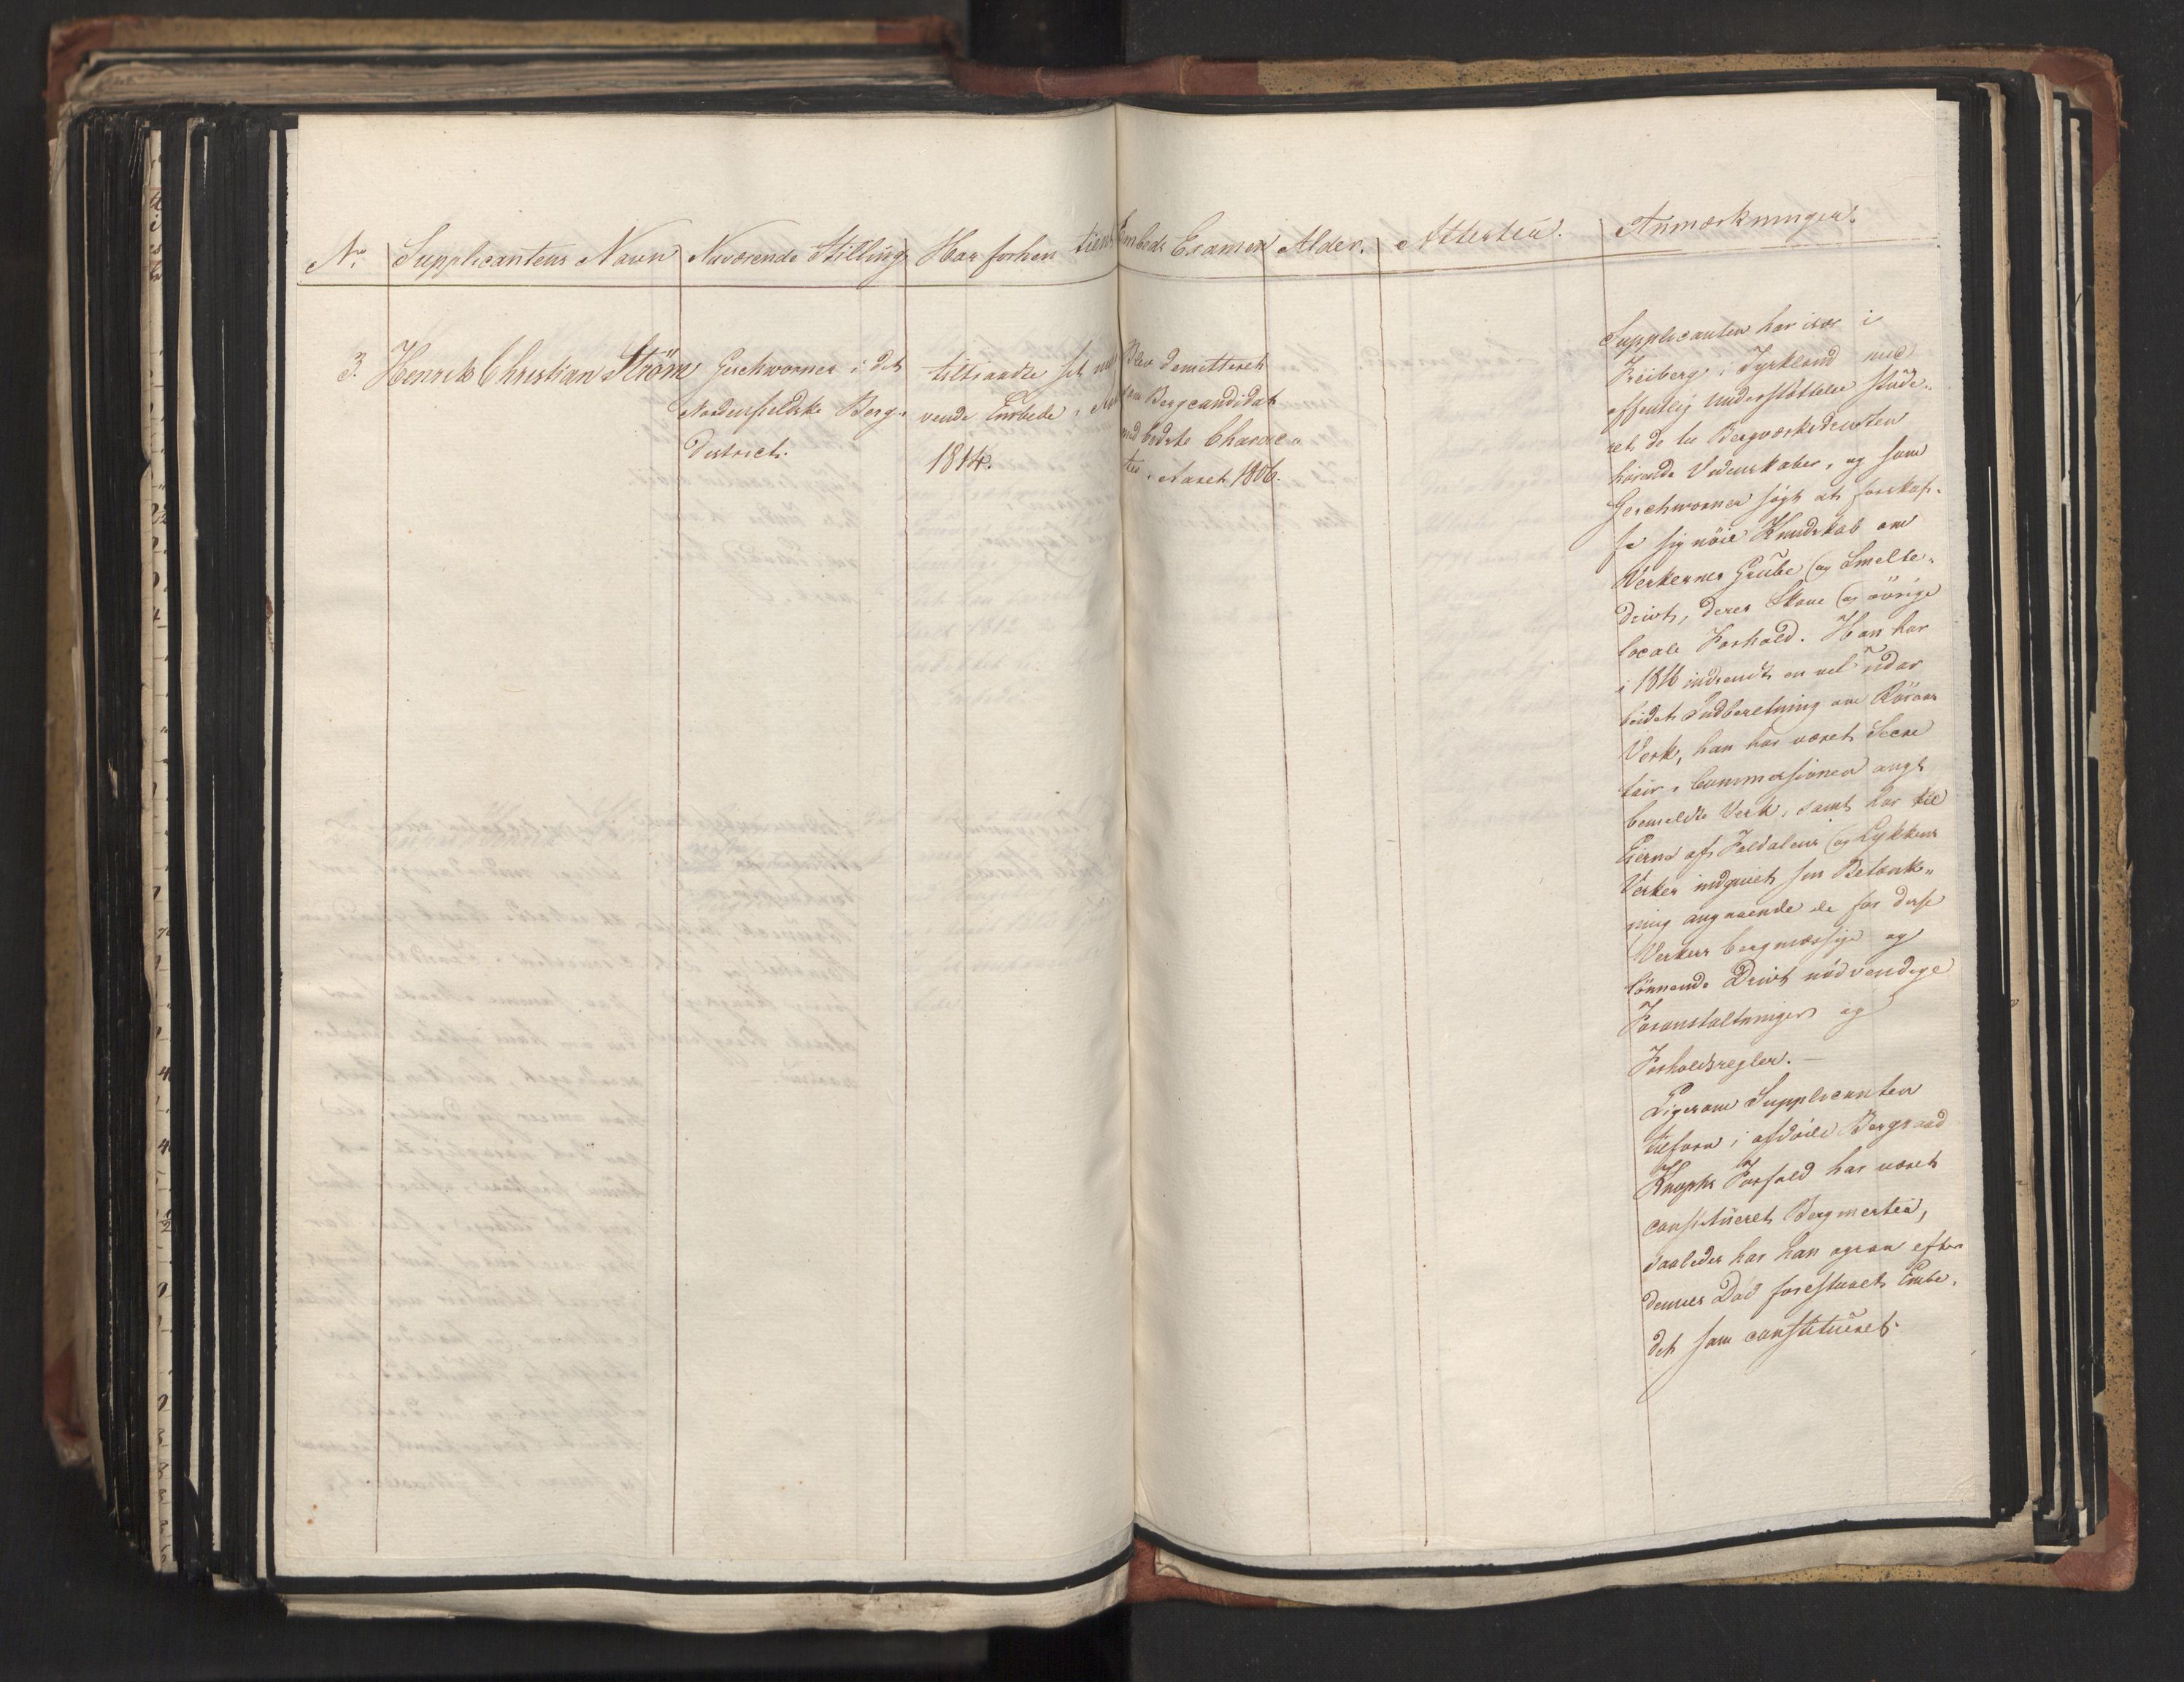 No. Supplicantens Navn Nuværende Stilling Har forhen tient Embeds Examen Alder. Attester. Anmærkninger.
3. Henrik Christian Ström
Geschworner i det
Nordenfieldske Berg-
district.
tiltraadte sit
vende Embede i
1814.
Blev demitteret
som Bergcandidat
med bedste Charac-
teer i Aaret 1806.
Supplicanten har især i
Freiberg i Tydskland med
offentlig Understøttelse stude-
ret de til Bergværksdriften
hørende Videnskaber, og som
Geschworner søgt at forskaf-
fe sig nöie Kundskab om
Verkernes Grube og Smelte-
drivt, deres Skove og øvrige
locale Forhold. Han har
i 1816 indsendt en vel udar
beidet Indberetning om Röraas
Verk, han har været Secre
tair i Commissionen angl.
bemeldte Verk, samt har til
Eierne af Foldalens og Lykkens
Verker indgivet sin Betænk-
ning angaaende de for disse
Verkers bergmæssige og
lönnende Drivt nödvendige
Foranstaltninger og
Forholdsregler. —
Ligesom Supplicanten
tilforn i afdöde Bergraad
Knophs Forfald har været
constitueret Bergmester,
saaledes har han ogsaa efter
dennes Död forestaaet Embe-
det som constitueret.